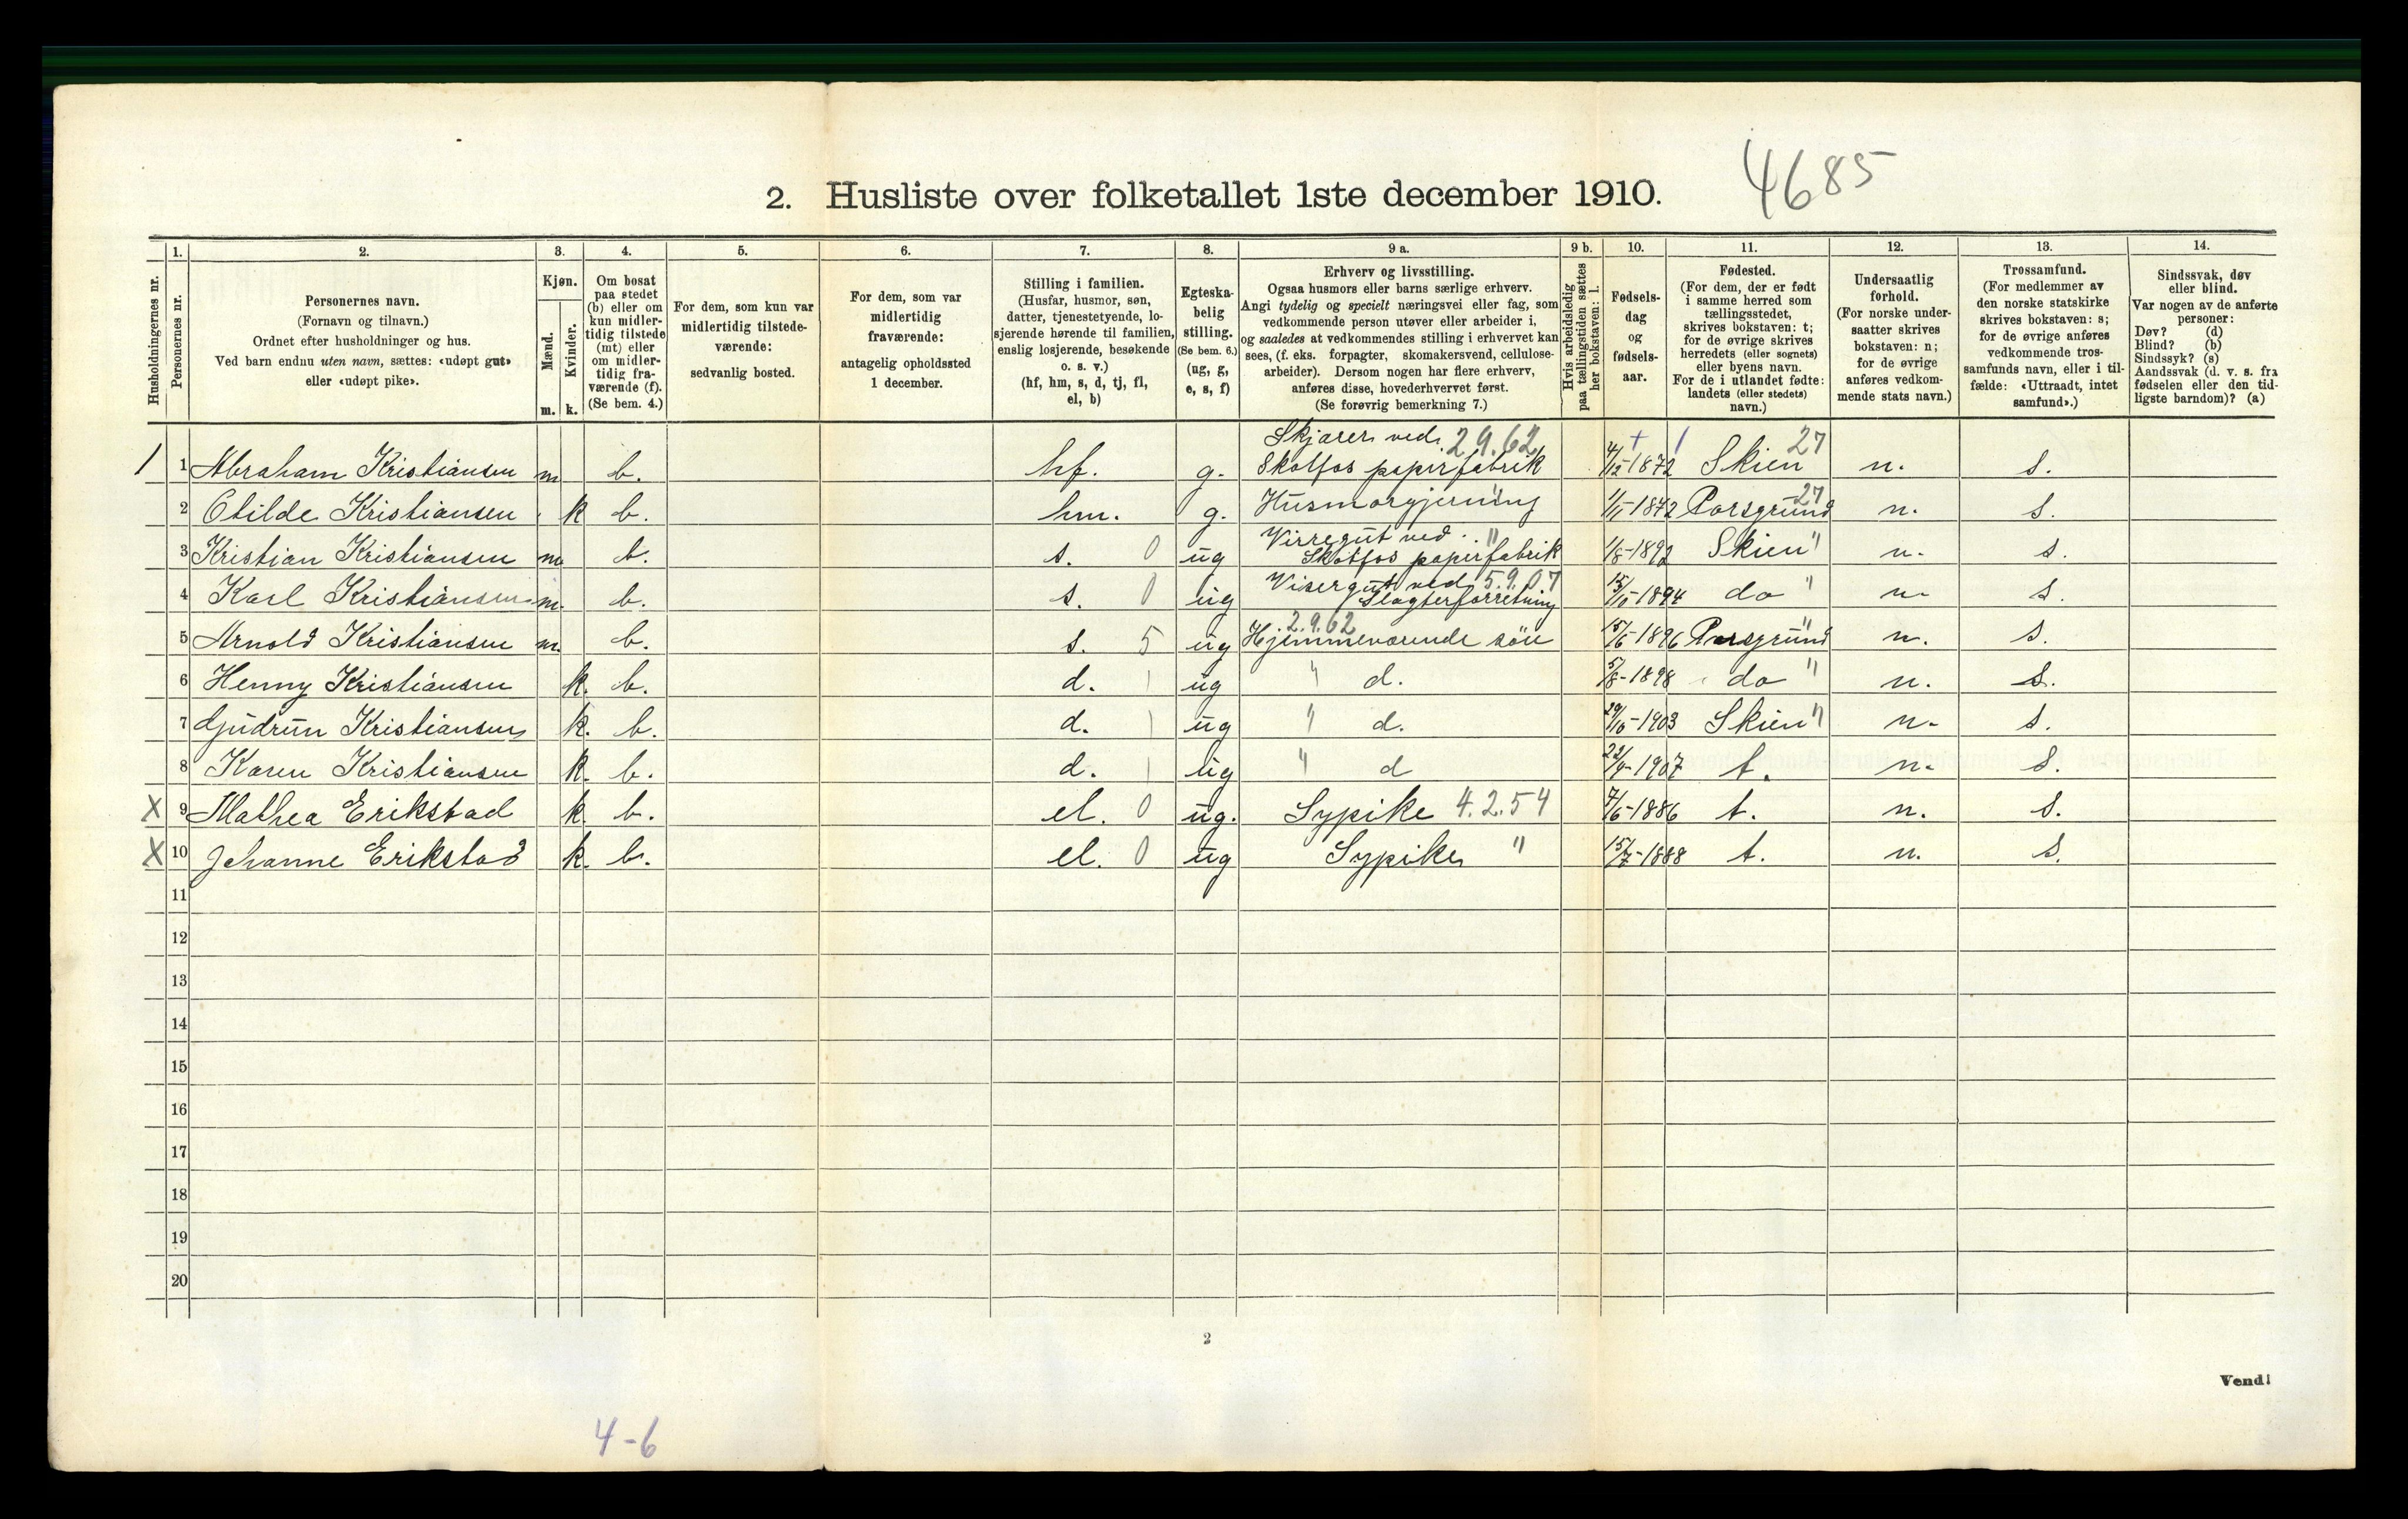 4685
2. Husliste over folketallet 1ste december 1910.
Husholdningernes nr.
1. Personernes nr.
2. Personernes navn. (Fornavn og tilnavn.) Ordnet efter husholdninger og hus. Ved barn endnu uten navn, sættes: «udøpt gut» eller «udøpt pike».
3. Kjøn. Mænd. m. Kvinder. k.
4. Om bosat paa stedet (b) eller om kun midlertidig tilstede (mt) eller om midlertidig fraværende (f). (Se bem. 4.)
5. For dem, som kun var midlertidig tilstedeværende: sedvanlig bosted.
6. For dem, som var midlertidig fraværende: antagelig opholdssted 1 december.
7. Stilling i familien. (Husfar, husmor, søn, datter, tjenestetyende, losjerende hørende til familien, enslig losjerende, besøkende o. s. v.) (hf, hm, s, d, tj, fl, el, b)
8. Egteskabelig stilling. (Se bem. 6.) (ug, g, e, s, f)
9 a. Erhverv og livsstilling. Ogsaa husmors eller barns særlige erhverv. Angi tydelig og specielt næringsvei eller fag, som vedkommende person utøver eller arbeider i, og saaledes at vedkommendes stilling i erhvervet kan sees, (f. eks. forpagter, skomakersvend, cellulosearbeider). Dersom nogen har flere erhverv, anføres disse, hovederhvervet først. (Se forøvrig bemerkning 7.)
9 b. Hvis arbeidsledig paa tællingstiden sættes her bokstaven: l.
10. Fødselsdag og fødselsaar.
11. Fødested. (For dem, der er født i samme herred som tællingsstedet, skrives bokstaven: t; for de øvrige skrives herredets (eller sognets) eller byens navn. For de i utlandet fødte: landets (eller stedets) navn.)
12. Undersaatlig forhold. (For norske undersaatter skrives bokstaven: n; for de øvrige anføres vedkommende stats navn.)
13. Trossamfund. (For medlemmer av den norske statskirke skrives bokstaven: s; for de øvrige anføres vedkommende trossamfunds navn, eller i tilfælde: «Uttraadt, intet samfund».)
14. Sindssvak, døv eller blind. Var nogen av de anførte personer: Døv? (d) Blind? (b) Sindssyk? (s) Aandssvak (d. v. s. fra fødselen eller den tidligste barndom)? (a)
1 1 Abraham Kristiansen m b. hf. g. Skjærer ved Skotfos papirfabrik 29.62 4/12-1872 Skien 27 n. s.
2 Otilde Kristiansen k b. hm. g. Husmorgjerning " 1/1-1872 Porsgrund 27 n. s.
3 Kristian Kristiansen m b. s. 0 ug Virregut ved Skotfos papirfabrik " 1/8-1892 Skien " n. s.
4 Karl Kristiansen m. b. s. 0 ug Visergut ved Slagterforretning 5.9.07 15/10-1894 do " n. s.
5 Arnold Kristiansen m. b. s. 5 ug Hjemmeværende søn 2.9.62 15/6-1896 Porsgrund " n. s.
6 Henny Kristiansen k. b. d. 1 ug " d. 5/8-1898 do " n. s.
7 Gudrun Kristiansen k. b. d. 1 ug " d. 29/10-1903 Skien " n. s.
8 Karen Kristiansen k. b. d. 1 ug " d 22/9-1907 t. n. s.
X 9 Mathea Erikstad k. b. el. 0 ug. Sypike 4.2.54 7/6-1886 t. n. s.
X 10 Johanne Erikstad k. b. el. 0 ug Sypike " 15/7-1888 t. n. s.
11
12
13
14
15
16
17
18
19
20
2
Vend!
4-6